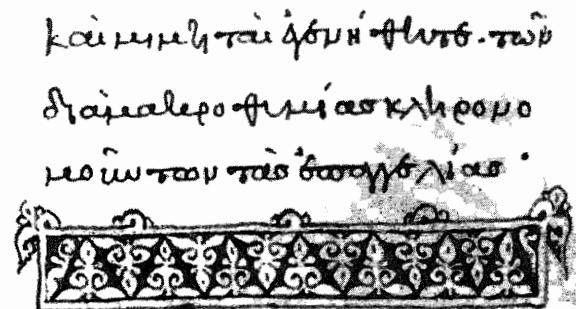 καὶ μιμηταὶ γενήθητε. τῶν
διὰ μακροθυμίας κληρονο
μούντων τὰς ἐπαγγελίας·